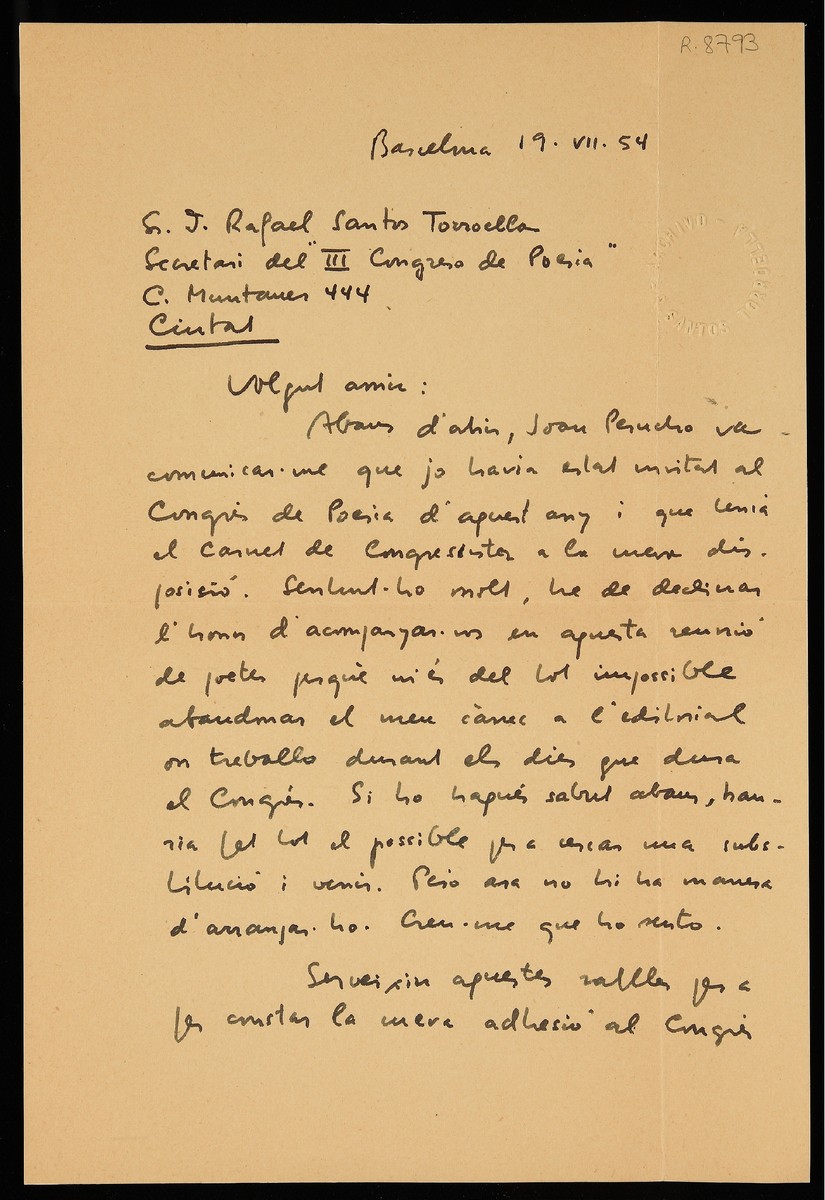 R. 8793
Barcelona 19. VII. 54
Sr. J. Rafael Santos Torroella
Secretari del "III Congreso de Poesía"
C. Muntaner 444
Ciutat
Volgut amic:
Abans d'ahir, Joan Perucho va
comunicar-me que jo havia estat invitat al
Congrés de Poesia d'aquest any i que tenia
el carnet de Congressista a la meva dis-
posició. Sentint-ho molt, he de declinar
l'honor d'acompanyar-vos en aquesta reunió
de poetes perquè m'és del tot impossible
abandonar el meu càrrec a l'editorial
on treballo durant els dies que dura
el Congrés. Si ho hagués sabut abans, hau-
ria fet tot el possible per a cercar una subs-
titució i venir. Però ara no hi ha manera
d'arranjar-ho. Creu-me que ho sento.
Serveixin aquestes ratlles per a
fer constar la meva adhesió al Congrés
ARCHIVO
SANTOS TORROELLA